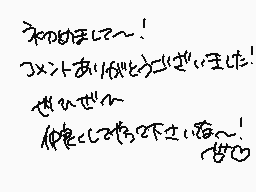 ネわめまして〜!
コメントありがとうございました!
ぜひぜひ
仲良くしてやって下さいな〜!